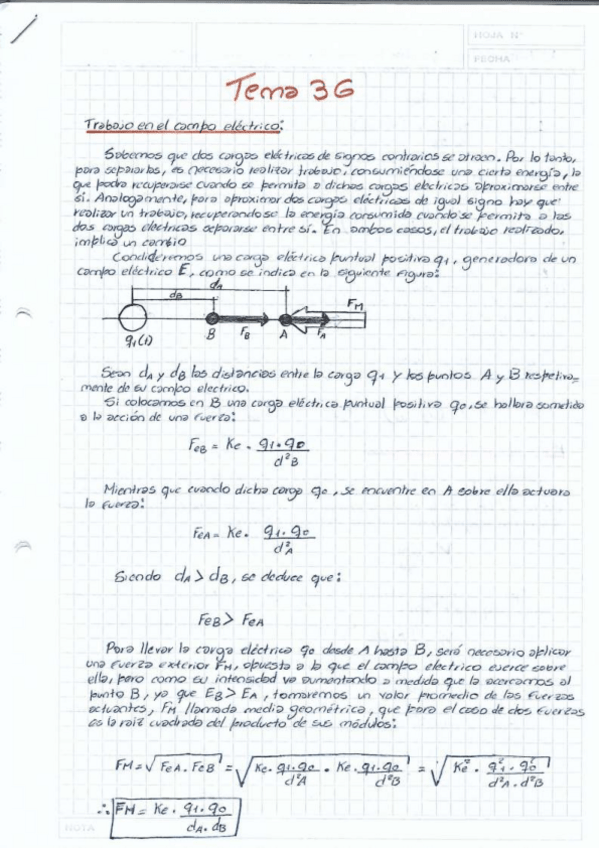 HOJA Nº
FECHA
Tema 36
Trabajo en el campo eléctrico:
Sabemos que dos cargas eléctricas de signos contrarios se atraen. Por lo tanto,
para separarlas, es necesario realizar trabajo, consumiéndose una cierta energía, la
que podra recuperarse cuando se permita a dichas cargas electricas aproximarse entre
sí. Analogamente, para aproximar dos cargas eléctricas de igual signo hay que
realizar un trabajo, recuperandose la energía consumida cuando se permita a las
dos cargas eléctricas separarse entre sí. En ambos casos, el trabajo realizado,
implica un cambio
Condideremos una carga eléctrica puntual positiva q1, generadora de un
campo eléctrico E, como se indica en la siguiente figura:
dA
dB
FM
q1(1) B FB A FA
Sean dA y dB las distancias entre la carga q1 y los puntos A y B respetiva-
mente de su campo electrico.
Si colocamos en B una carga eléctrica puntual positiva q0, se hallara sometido
a la acción de una fuerza:
FeB = Ke · q1·q0 / d²B
Mientras que cuando dicha carga q0, se encuentre en A sobre ella actuara
la fuerza:
FeA = Ke · q1·q0 / d²A
Siendo dA > dB, se deduce que:
FeB > FeA
Para llevar la carga eléctrica q0 desde A hasta B, será necesario aplicar
una fuerza exterior FM, opuesta a la que el campo electrico ejerce sobre
ella, pero como su intensidad va aumentando a medida que la acercamos al
punto B, ya que EB > EA, tomaremos un valor promedio de las fuerzas
actuantes, FM llamada media geométrica, que para el caso de dos fuerzas
es la raiz cuadrada del producto de sus módulos:
FM = √FeA · FeB = √Ke · q1·q0 / d²A · Ke · q1·q0 / d²B = √Ke² · q1²·q0² / d²A·d²B
∴ FM = Ke · q1·q0 / dA·dB
NOTA